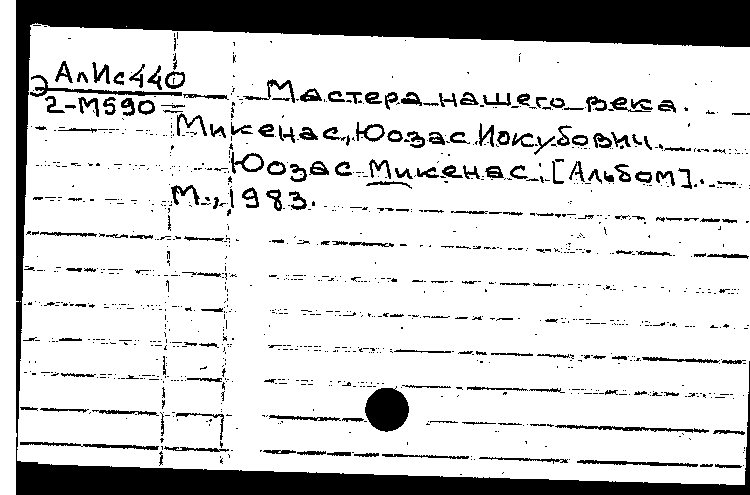 Э АлИс440
2-М590 =
Мастера нашего века.
Микенас, Юозас Иокубович.
Юозас Микенас: [Альбом].
М., 1983.